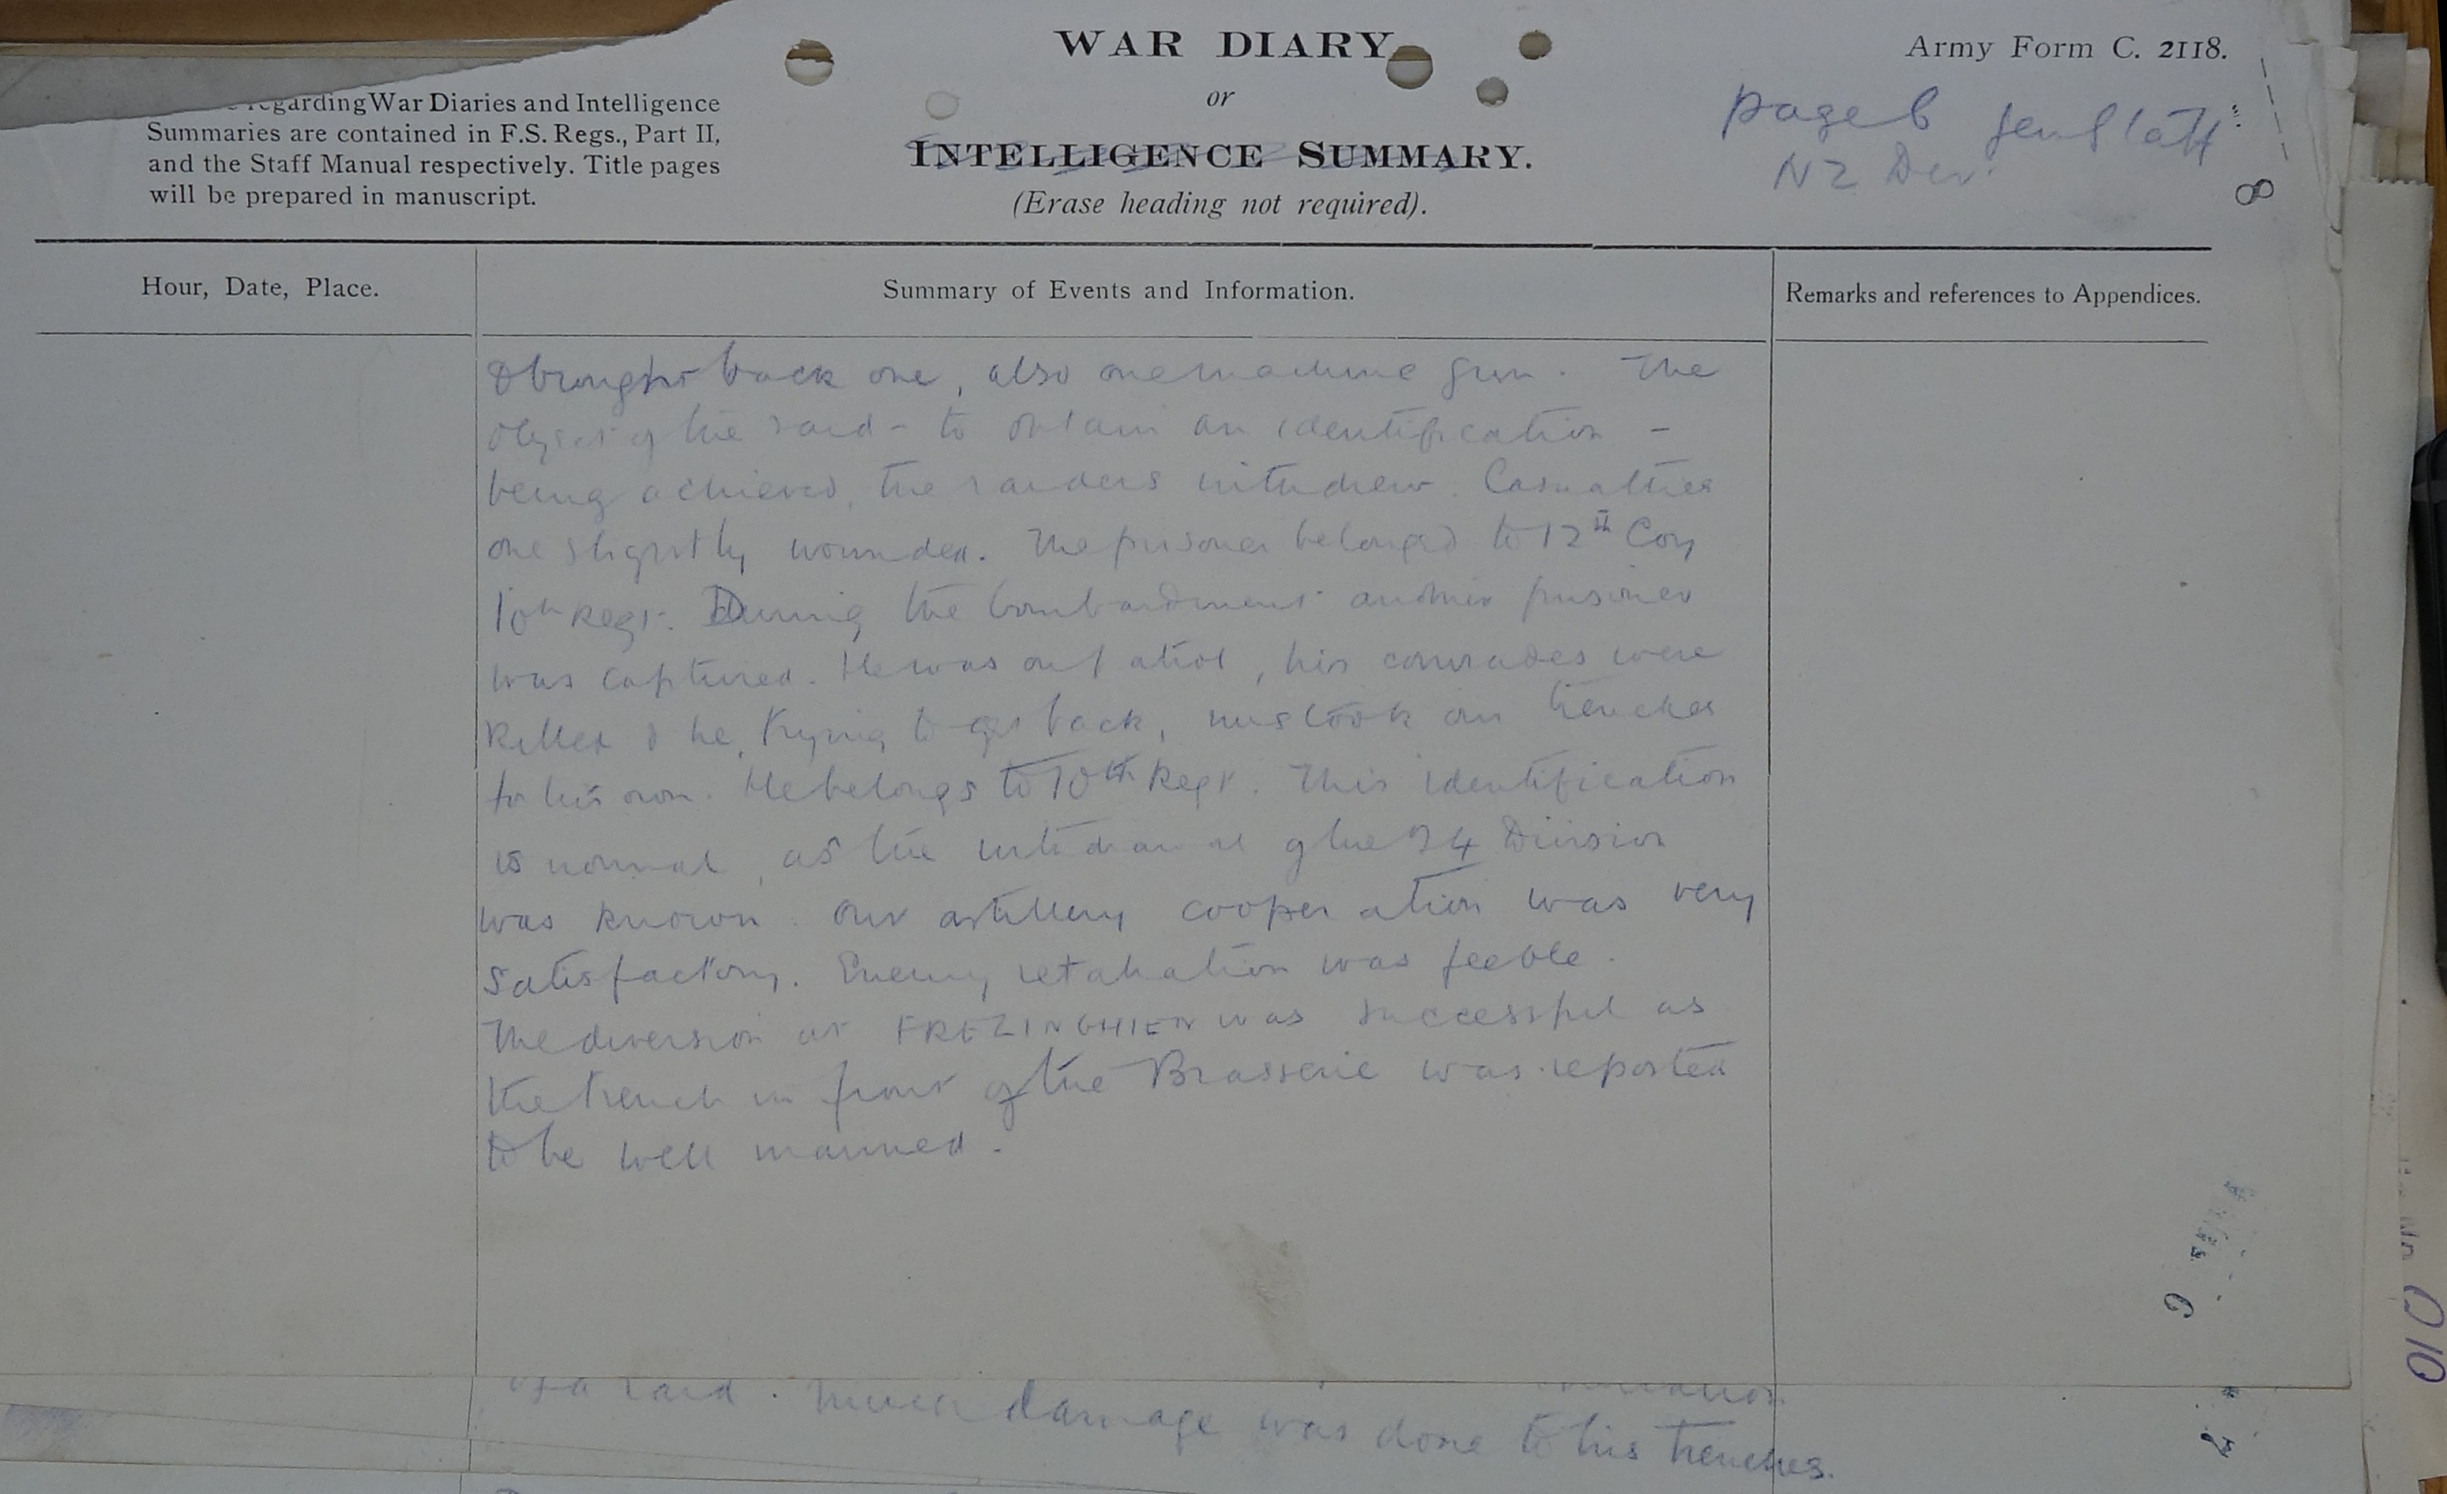 WAR DIARY
or
INTELLIGENCE SUMMARY.
(Erase heading not required).
Army Form C. 2118.
page 6 Genl Staff
NZ Div.
8
regarding War Diaries and Intelligence
Summaries are contained in F.S. Regs., Part II,
and the Staff Manual respectively. Title pages
will be prepared in manuscript.
Hour, Date, Place.
Summary of Events and Information.
Remarks and references to Appendices.
& brought back one, also one machine gun. The
object of the raid - to obtain an identification -
being achieved, the raiders withdrew. Casualties
one slightly wounded. The prisoner belonged to 12th Coy
10th Regt. During the bombardment another prisoner
was captured. He was on patrol, his comrades were
killed & he, trying to get back, mistook our trenches
for his own. He belongs to 10th Regt. This identification
is normal, as the withdrawal of the 24 Division
was known. Our artillery cooperation was very
satisfactory. Enemy retaliation was feeble.
The diversion at FREZINGHIEN was successful as
the trench in front of the Brasserie was reported
to be well manned.
of a raid. Much damage was done to his trenches.